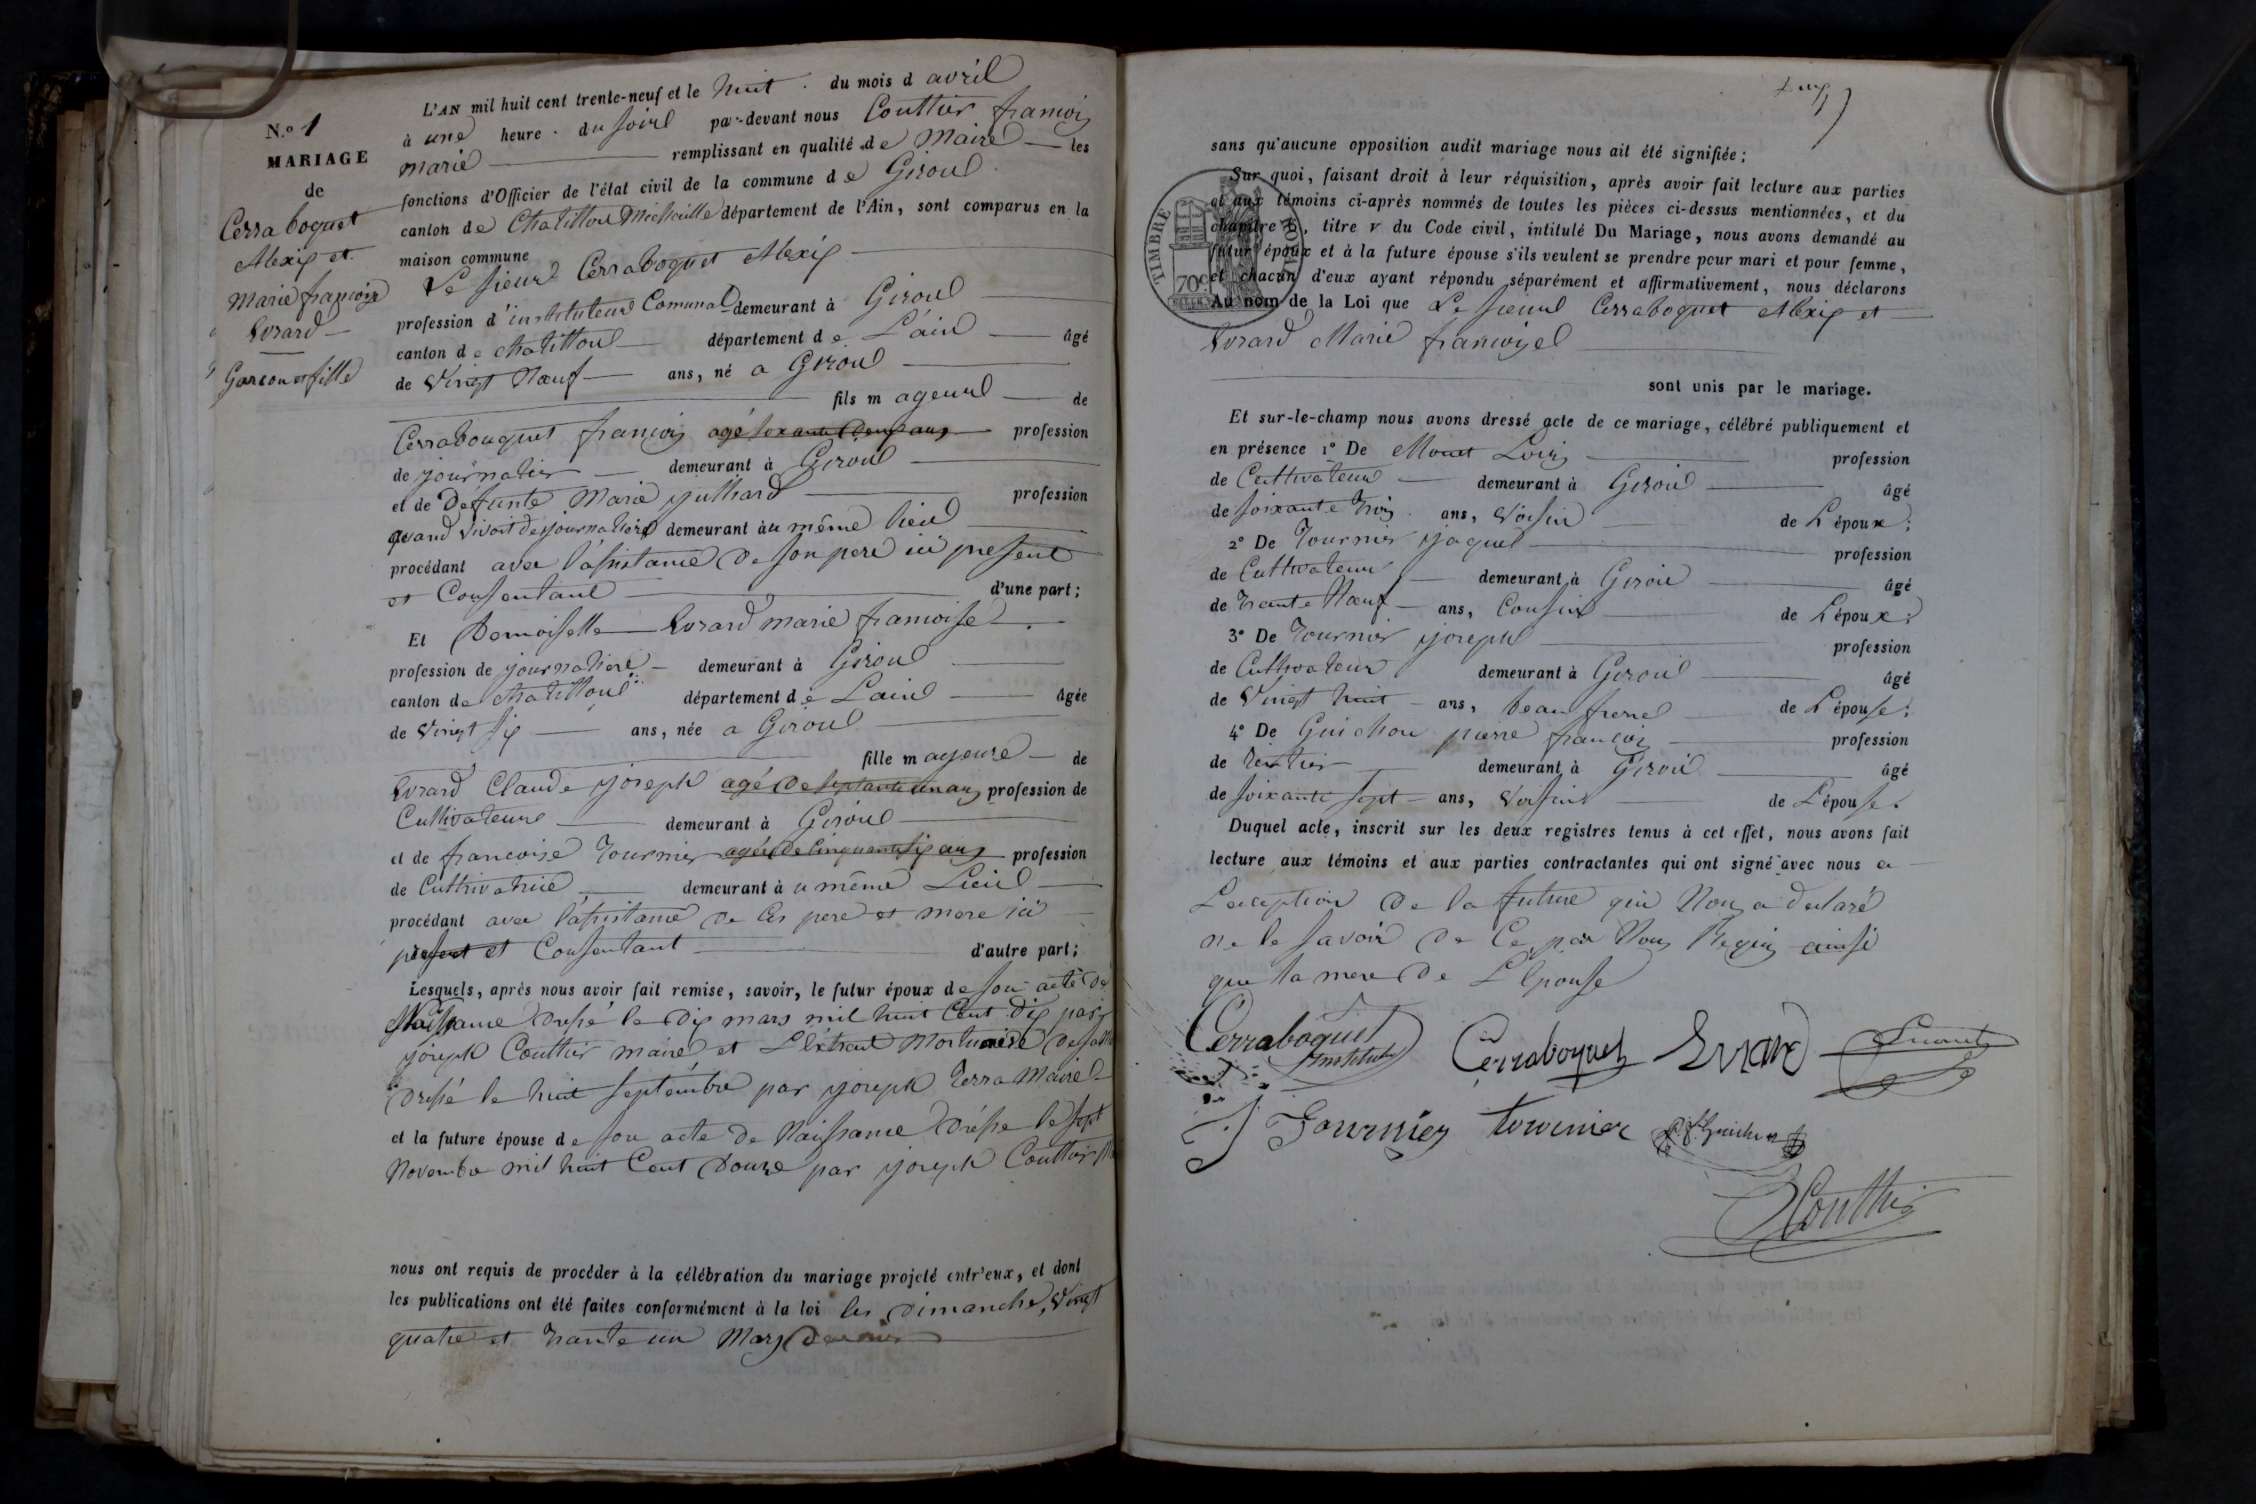 N.o 1
MARIAGE
de
Cerraboquet
Alexis et
Marie françoise
Evrard
Garcon et fille
L'AN mil huit cent trente-neuf et le huit du mois d avril
à une heure du soir par-devant nous Couttier françois
marie remplissant en qualité de Maire les
fonctions d'Officier de l'état civil de la commune de Giron
canton de Chatillon Michaille département de l'Ain, sont comparus en la
maison commune
Le sieur Cerraboquet Alexis
profession d'instituteur Comunal demeurant à Giron
canton de chatillon département de L'ain âgé
de Vingt Nœuf ans, né a Giron
fils mageur de
Cerrabouquet françois agé soixante deux ans profession
de journalier demeurant à Giron
et de Défunte Marie Julliard profession
quand vivoit de journaliere demeurant au même lieu
procédant avec l'assistance de son pere ici present
et Consentant d'une part;
Et Demoiselle Evrard marie francoise
profession de journaliere demeurant à Giron
canton de chatillon département de Lain âgée
de Vingt six ans, née a Giron
fille mageure de
Evrard Claude joseph agé de septante un ans profession de
Cultivateur demeurant à Giron
et de francoise Tournier agée de Cinquante six ans profession
de Cultivatrice demeurant à u même Lieu
procédant avec l'assistance de ses pere et mere ici
présent et Consentant d'autre part;
Lesquels, après nous avoir fait remise, savoir, le futur époux de son acte de
Naissance dressé le dix mars mil huit Cent dix par
joseph Couttier maire et L'éxtrait Mortuaire de sa
dressé le huit septembre par joseph Terra Maire
et la future épouse de son acte de Naissance dréssé le sept
Novembre mil huit Cent Douze par joseph Couttier
nous ont requis de procéder à la célébration du mariage projeté entr'eux, et dont
les publications ont été faites conformément à la loi les dimanche, Vingt
quatre et trante un Mars dernier
sans qu'aucune opposition audit mariage nous ait été signifiée;
Sur quoi, faisant droit à leur réquisition, après avoir fait lecture aux parties
et aux témoins ci-après nommés de toutes les pièces ci-dessus mentionnées, et du
chapitre 6, titre v du Code civil, intitulé Du Mariage, nous avons demandé au
futur époux et à la future épouse s'ils veulent se prendre pour mari et pour femme,
et chacun d'eux ayant répondu séparément et affirmativement, nous déclarons
Au nom de la Loi que Le sieur Cerraboquet Alexis et
Evrard Marie françoise
sont unis par le mariage.
TIMBRE ROYAL
70c
Et sur-le-champ nous avons dressé acte de ce mariage, célébré publiquement et
en présence 1° De Monet Louis profession
de Cultivateur demeurant à Giron âgé
de soixante trois ans, Voisin de L'époux;
2° De Tournier jaques profession
de Cultivateur demeurant à Giron âgé
de trante Nœuf ans, Cousin de L'époux;
3° De Tournier joseph profession
de Cultivateur demeurant à Giron âgé
de Vingt huit ans, beau frere de L'épouse;
4° De Guichon pierre françois profession
de rentier demeurant à Giron âgé
de soixante sept ans, Voisin de L'épouse.
Duquel acte, inscrit sur les deux registres tenus à cet effet, nous avons fait
lecture aux témoins et aux parties contractantes qui ont signé avec nous a
L'exception de la future qui Nous a declaré
ne le savoir de Ce par Nous Requis ainsi
que la mere de L'Epouse
Cerraboquet
Instituteur
Cerraboquet Evrard
J Tournier tournier P. F. Guichon
Couttier